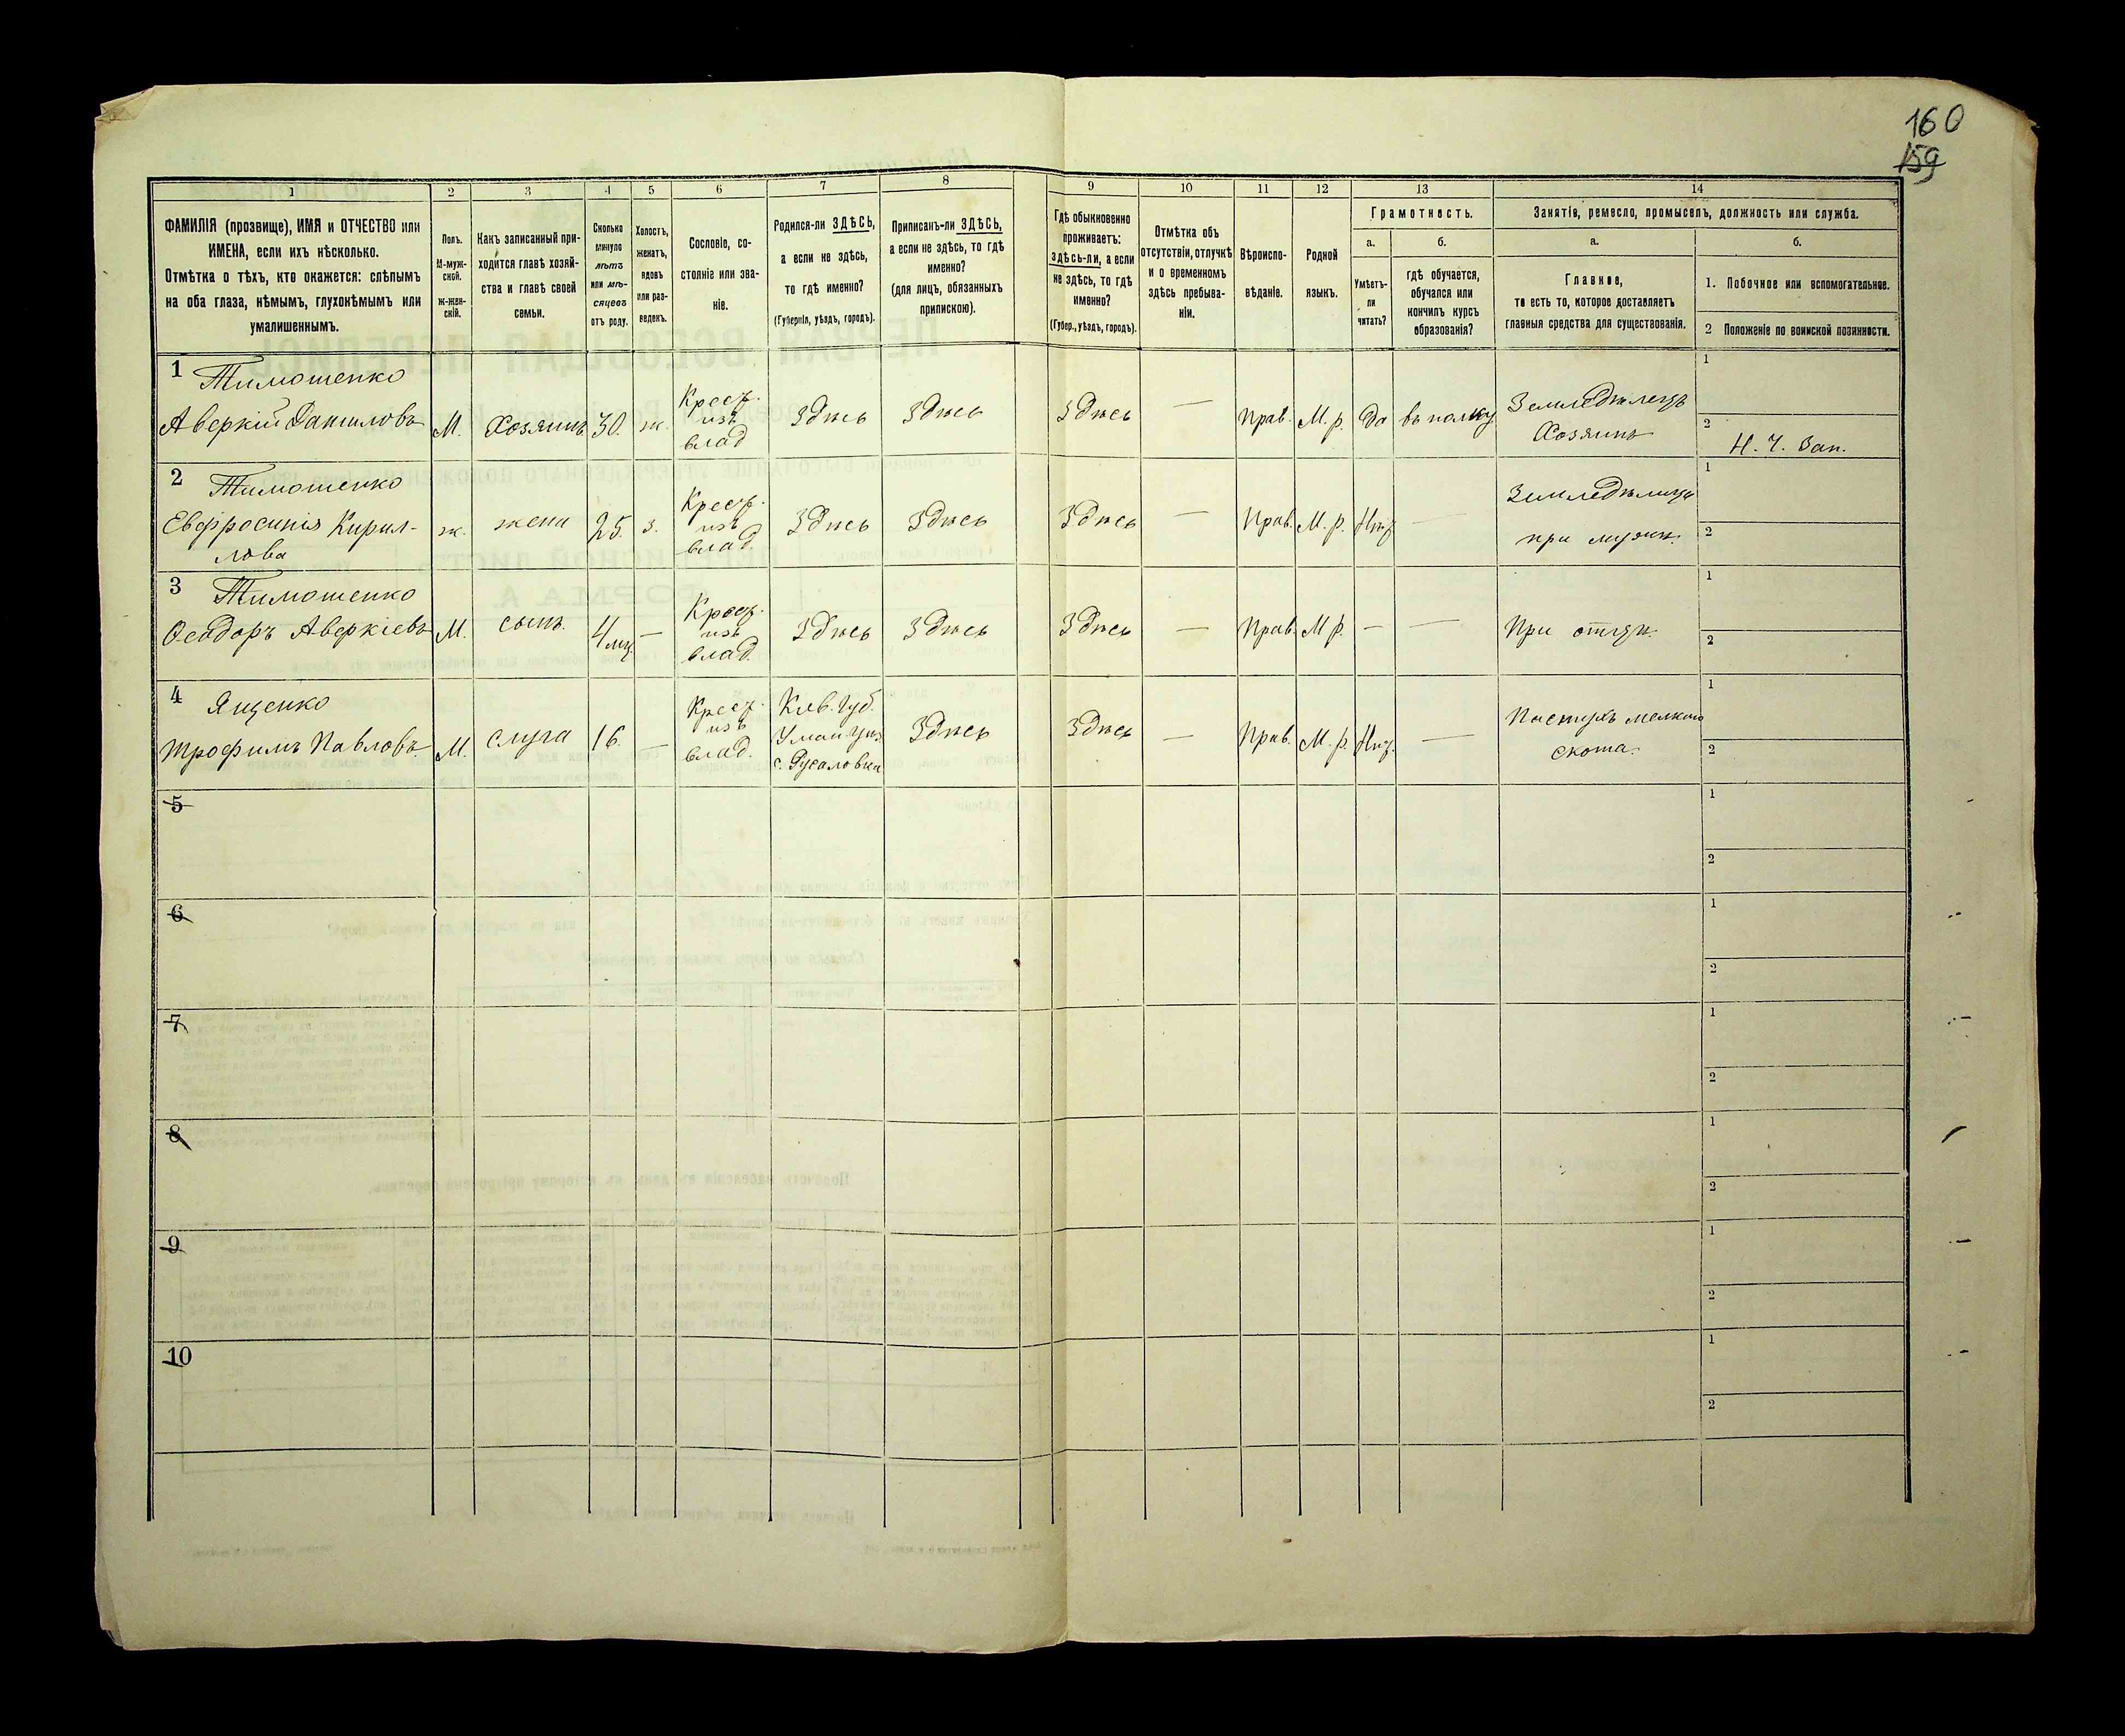 160
159
1 2 3 4 5 6 7 8 9 10 11 12 13 14
ФАМИЛІЯ (прозвище), ИМЯ и ОТЧЕСТВО или
ИМЕНА, если ихъ нѣсколько.
Отмѣтка о тѣхъ, кто окажется: слѣпымъ
на оба глаза, нѣмымъ, глухонѣмымъ или
умалишеннымъ.
Полъ.
М-муж-
ской.
ж-жен-
скій.
Какъ записанный при-
ходится главѣ хозяй-
ства и главѣ своей
семьи.
Сколько
минуло
лѣтъ
или мѣ-
сяцевъ
отъ роду.
Холостъ,
женатъ,
вдовъ
или раз-
веденъ.
Сословіе, со-
стояніе или зва-
ніе.
Родился-ли ЗДѢСЬ,
а если не здѣсь,
то гдѣ именно?
(Губернія, уѣздъ, городъ).
Приписанъ-ли ЗДѢСЬ,
а если не здѣсь, то гдѣ
именно?
(для лицъ, обязанныхъ
припискою).
Гдѣ обыкновенно
проживаетъ:
здѣсь-ли, а если
не здѣсь, то гдѣ
именно?
(Губер., уѣздъ, городъ).
Отмѣтка объ
отсутствіи, отлучкѣ
и о временномъ
здѣсь пребыва-
ніи.
Вѣроиспо-
вѣданіе.
Родной
языкъ.
Грамотность.
а.
Умѣетъ-
ли
читать?
б.
гдѣ обучается,
обучался или
кончилъ курсъ
образованія?
Занятіе, ремесло, промыселъ, должность или служба.
а.
Главное,
то есть то, которое доставляетъ
главныя средства для существованія.
б.
1. Побочное или вспомогательное.
2 Положеніе по воинской повинности.
1 Тимошенко
Аверкій Даниловъ М. Хозяинъ 30. ж. Крест. изъ влад. Здѣсь Здѣсь Здѣсь — Прав. М. р. Да въ полку Земледѣлецъ
Хозяинъ
1
2 Н. Ч. Зап.
2 Тимошенко
Евфросинія Кирил-
лова ж. жена 25. з. Крест. изъ влад. Здѣсь Здѣсь Здѣсь — Прав. М. р. Нѣт —
при мужѣ.
1
2
3 Тимошенко
Ѳеодоръ Аверкіевъ М. сынъ. 4 мѣ. — Крест. изъ влад. Здѣсь Здѣсь Здѣсь — Прав. М р. — — При отцѣ.
1
2
4 Ященко
Трофимъ Павловъ М. слуга 16. — Крест. изъ влад. Кіев. Губ.
Уман. уѣз.
с. Русаловка Здѣсь Здѣсь — Прав. М. р. Нѣт. — Пастухъ мелкаго
скота.
1
2
5
1
2
6
1
2
7
1
2
8
1
2
9
1
2
10
1
2